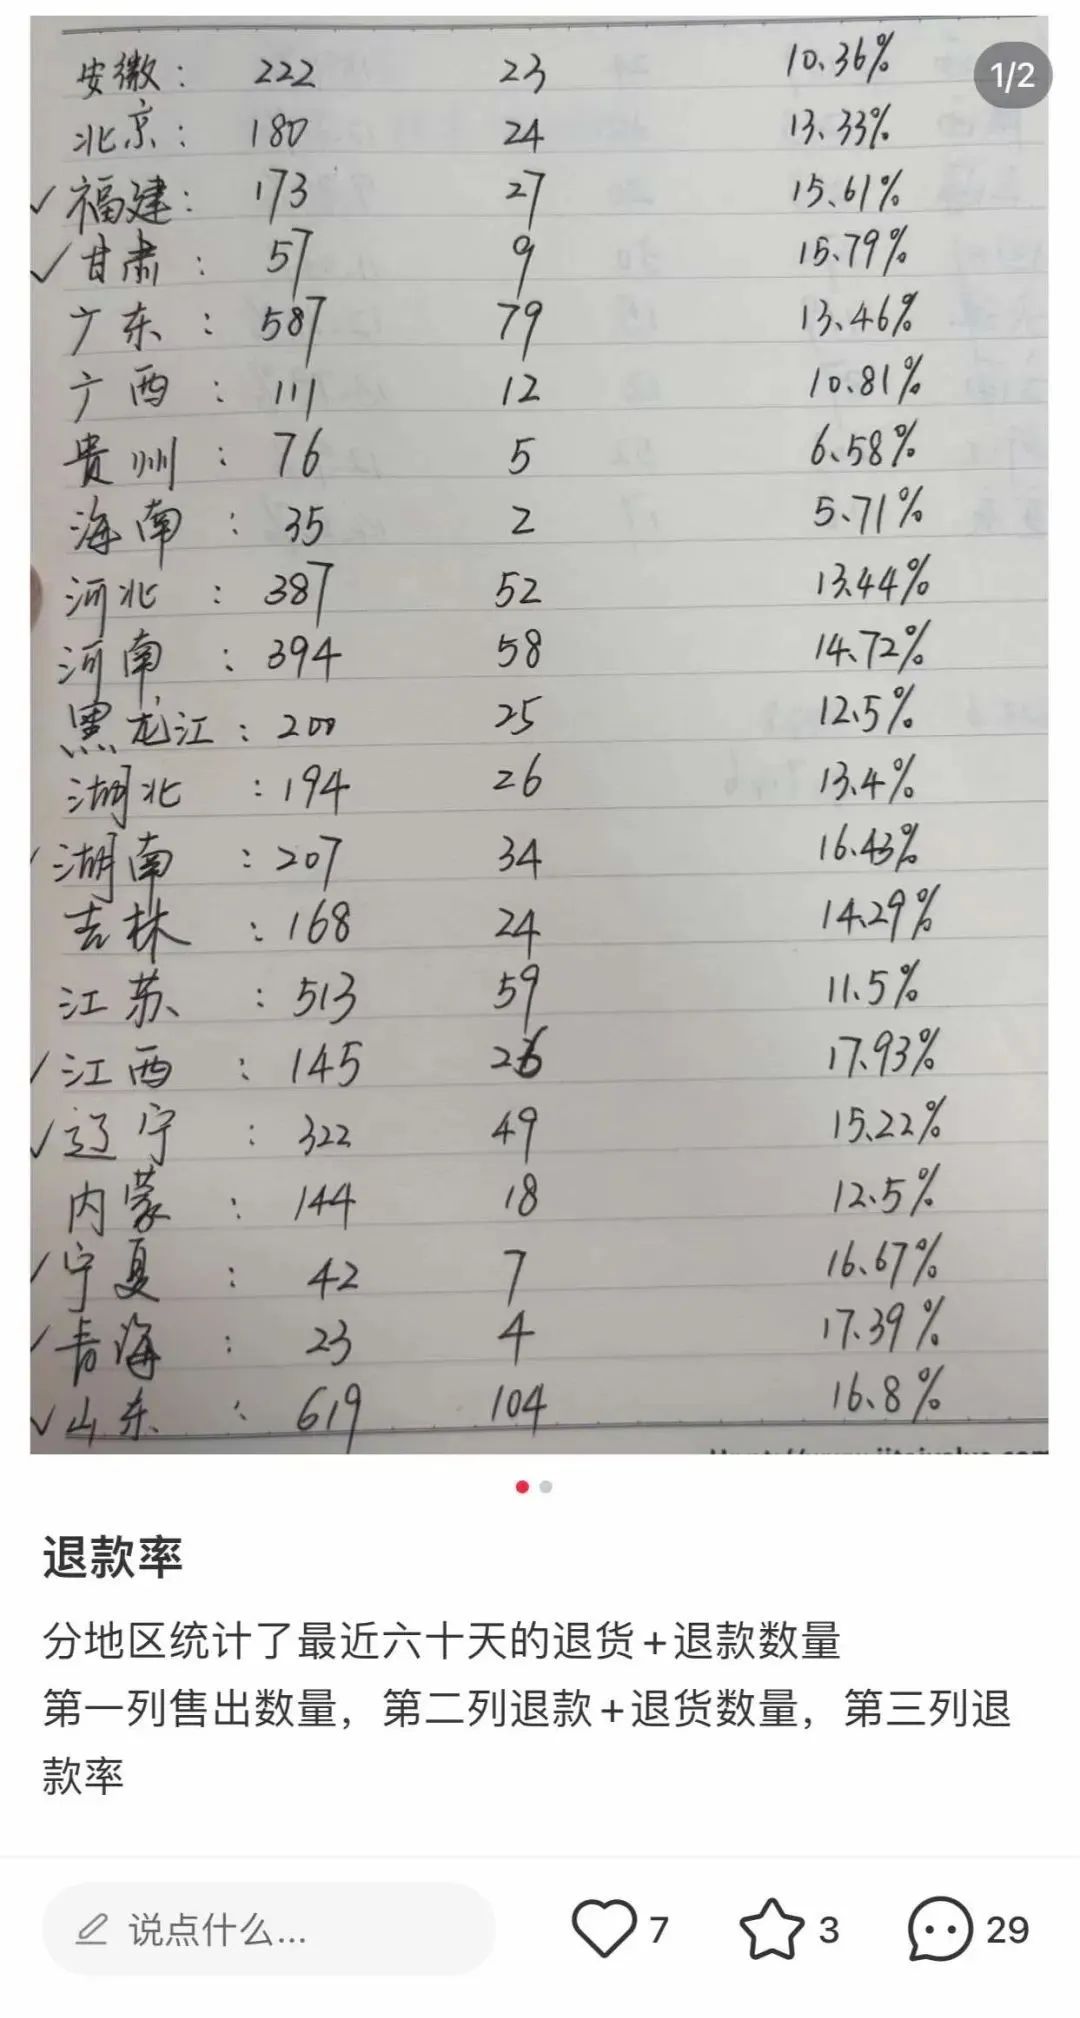 安徽: 222 23 10.36%
1/2
北京: 180 24 13.33%
✓福建: 173 27 15.61%
✓甘肃: 57 9 15.79%
广东: 587 79 13.46%
广西: 111 12 10.81%
贵州: 76 5 6.58%
海南: 35 2 5.71%
河北: 387 52 13.44%
河南: 394 58 14.72%
黑龙江: 200 25 12.5%
湖北: 194 26 13.4%
✓湖南: 207 34 16.43%
吉林: 168 24 14.29%
江苏: 513 59 11.5%
✓江西: 145 26 17.93%
✓辽宁: 322 49 15.22%
内蒙: 144 18 12.5%
✓宁夏: 42 7 16.67%
✓青海: 23 4 17.39%
✓山东: 619 104 16.8%
退款率
分地区统计了最近六十天的退货+退款数量
第一列售出数量，第二列退款+退货数量，第三列退
款率
说点什么... 7 3 29